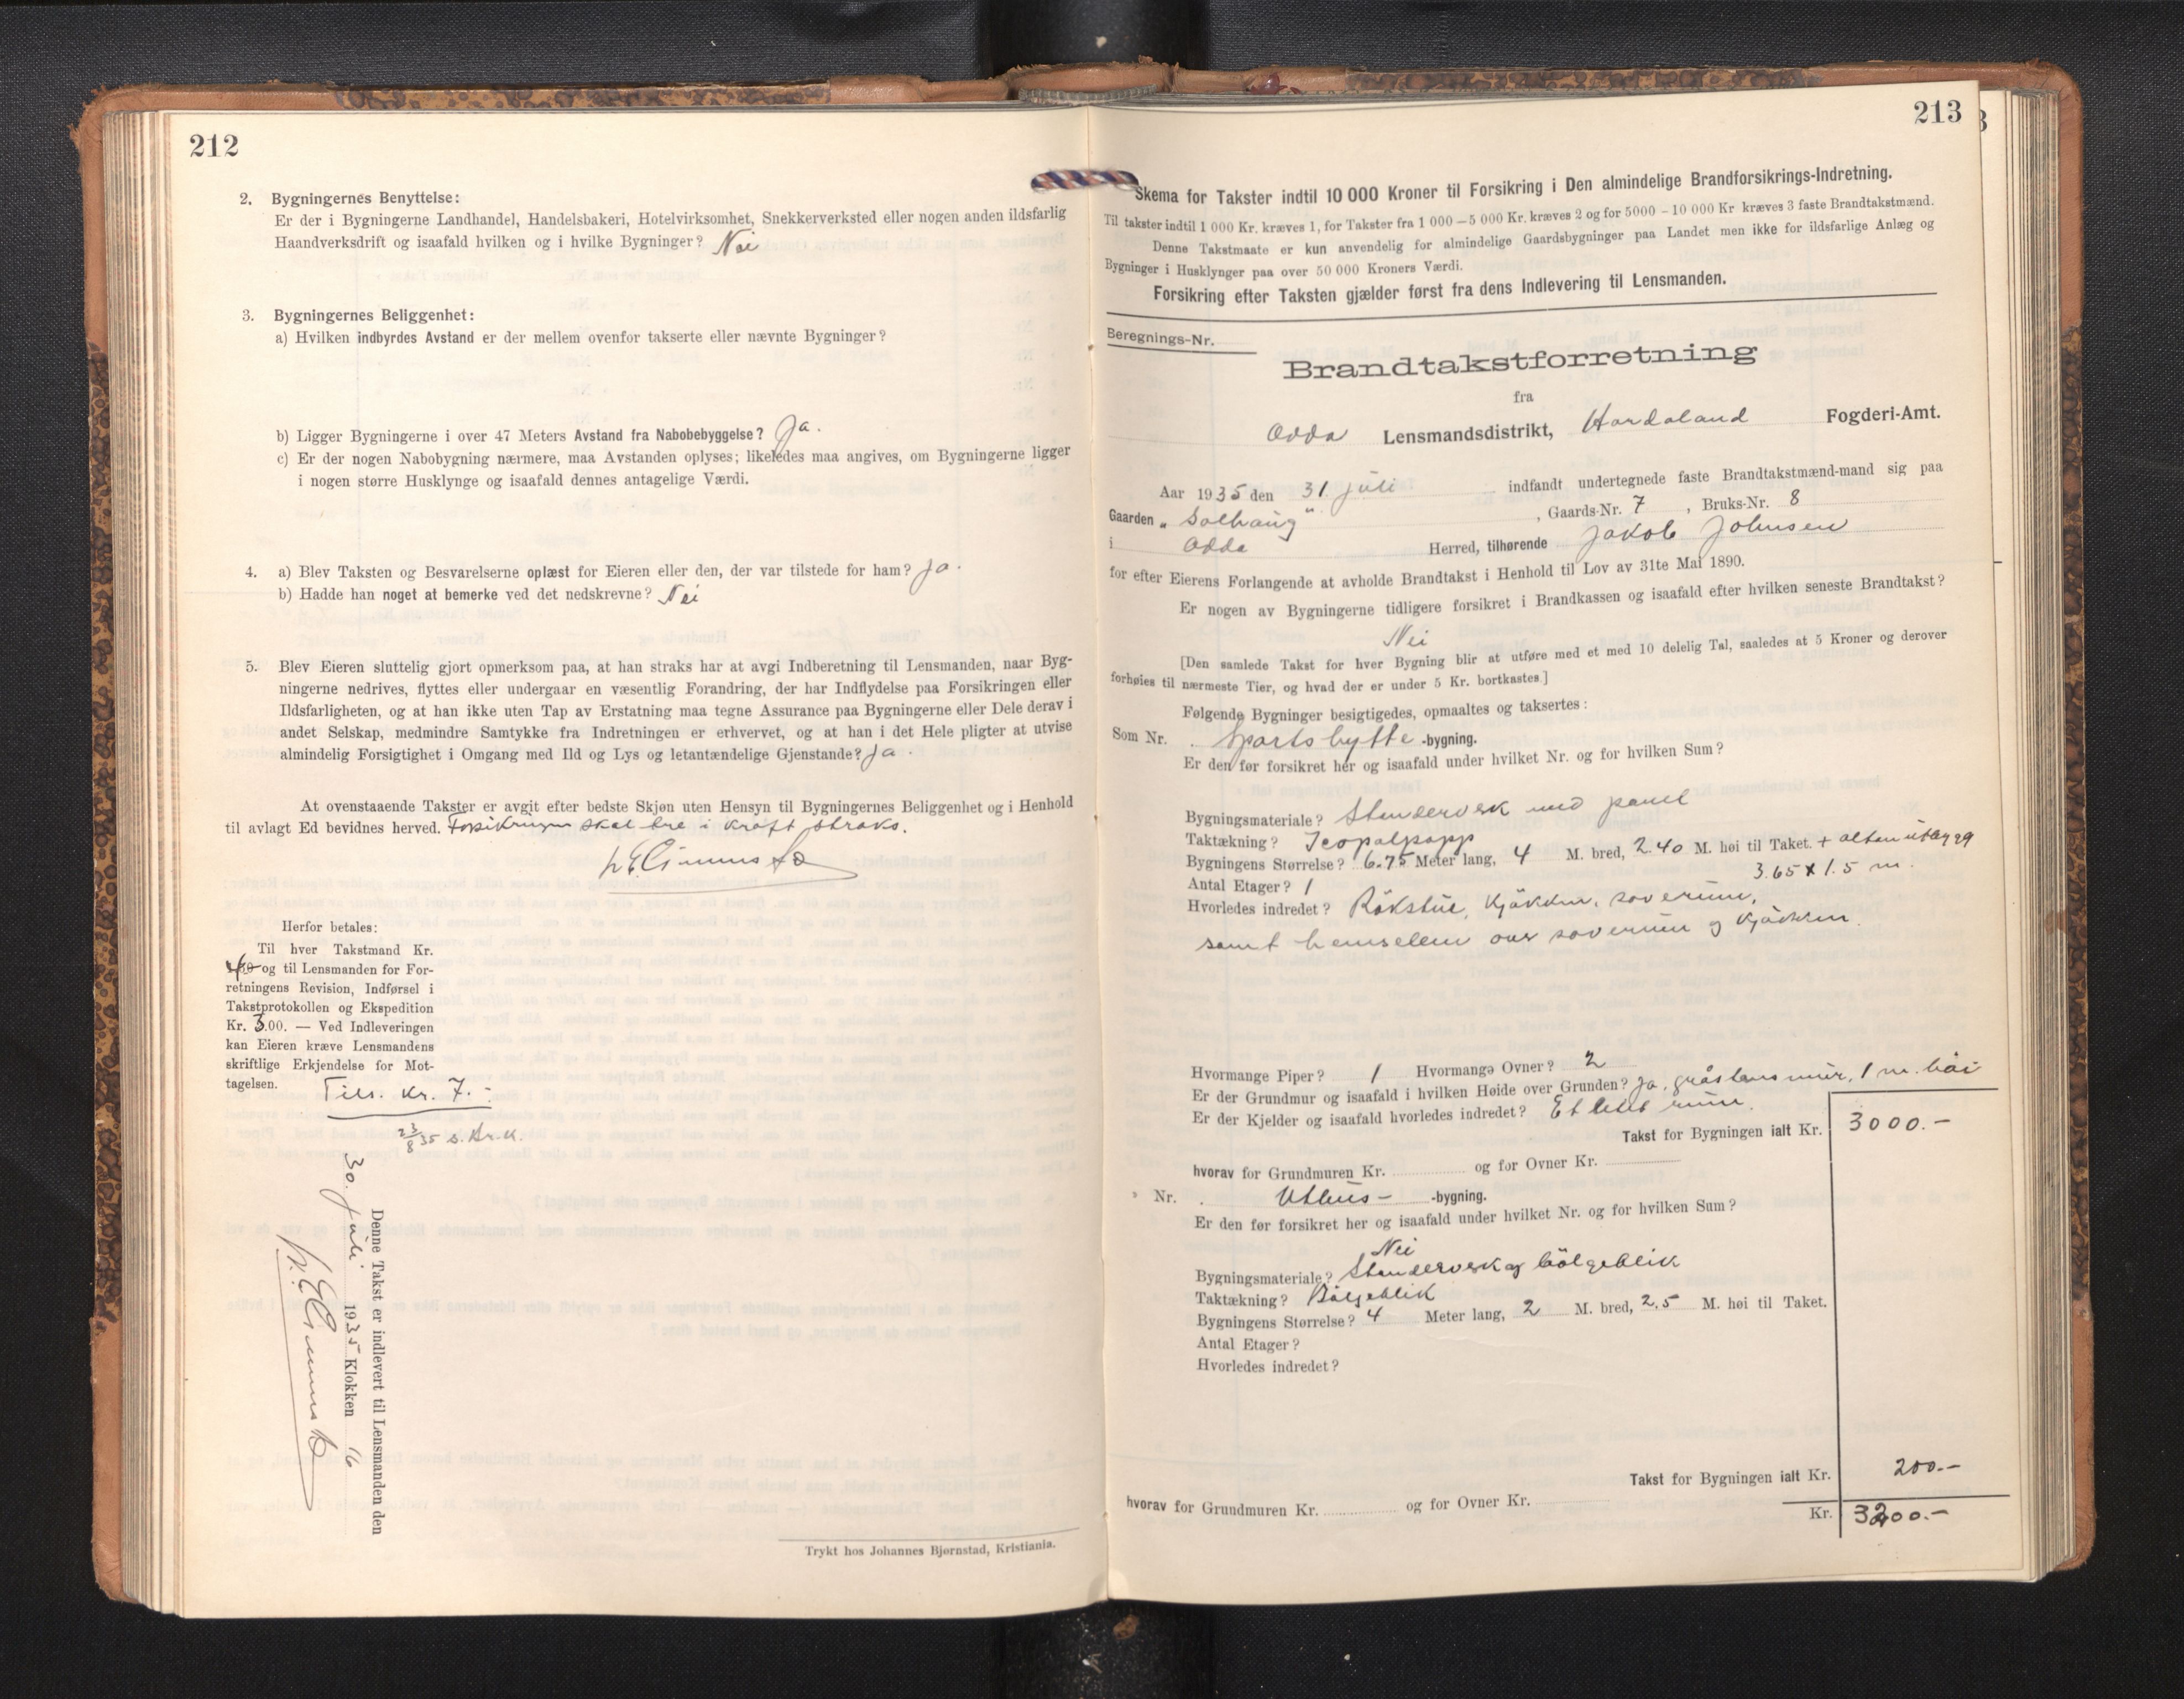 212
2. Bygningernes Benyttelse:
Er der i Bygningerne Landhandel, Handelsbakeri, Hotelvirksomhet, Snekkerverksted eller nogen anden ildsfarlig
Haandverksdrift og isaafald hvilken og i hvilke Bygninger? Nei
3. Bygningernes Beliggenhet:
a) Hvilken indbyrdes Avstand er der mellem ovenfor takserte eller nævnte Bygninger?
b) Ligger Bygningerne i over 47 Meters Avstand fra Nabobebyggelse? Ja.
c) Er der nogen Nabobygning nærmere, maa Avstanden oplyses; likeledes maa angives, om Bygningerne ligger
i nogen større Husklynge og isaafald dennes antagelige Værdi.
4. a) Blev Taksten og Besvarelserne oplæst for Eieren eller den, der var tilstede for ham? Ja.
b) Hadde han noget at bemerke ved det nedskrevne? Nei
5. Blev Eieren sluttelig gjort opmerksom paa, at han straks har at avgi Indberetning til Lensmanden, naar Byg-
ningerne nedrives, flyttes eller undergaar en væsentlig Forandring, der har Indflydelse paa Forsikringen eller
Ildsfarligheten, og at han ikke uten Tap av Erstatning maa tegne Assurance paa Bygningerne eller Dele derav i
andet Selskap, medmindre Samtykke fra Indretningen er erhvervet, og at han i det Hele pligter at utvise
almindelig Forsigtighet i Omgang med Ild og Lys og letantændelige Gjenstande? Ja.
At ovenstaaende Takster er avgit efter bedste Skjøn uten Hensyn til Bygningernes Beliggenhet og i Henhold
til avlagt Ed bevidnes herved. Forsikringen skal tre i kraft straks.
Herfor betales:
Til hver Takstmand Kr.
4 og til Lensmanden for For-
retningens Revision, Indførsel i
Takstprotokollen og Ekspedition
Kr. 3.00. — Ved Indleveringen
kan Eieren kræve Lensmandens
skriftlige Erkjendelse for Mot-
tagelsen.
Tils. Kr. 7.-
23/8 35 s. Br.k.
Denne Takst er indlevert til Lensmanden den
30. juli 1935 Klokken 16
Trykt hos Johannes Bjørnstad, Kristiania.
213
Skema for Takster indtil 10 000 Kroner til Forsikring i Den almindelige Brandforsikrings-Indretning.
Til takster indtil 1 000 Kr. kræves 1, for Takster fra 1 000—5 000 Kr. kræves 2 og for 5000—10 000 Kr kræves 3 faste Brandtakstmænd.
Denne Takstmaate er kun anvendelig for almindelige Gaardsbygninger paa Landet men ikke for ildsfarlige Anlæg og
Bygninger i Husklynger paa over 50 000 Kroners Værdi.
Forsikring efter Taksten gjælder først fra dens Indlevering til Lensmanden.
Beregnings-Nr.
Brandtakstforretning
fra
Odda Lensmandsdistrikt, Hordaland Fogderi-Amt.
Aar 1935 den 31 juli indfandt undertegnede faste Brandtakstmænd-mand sig paa
Gaarden „Solhaug“, Gaards-Nr. 7, Bruks-Nr. 8
i Odda Herred, tilhørende Jakob Johnsen
for efter Eierens Forlangende at avholde Brandtakst i Henhold til Lov av 31te Mai 1890.
Er nogen av Bygningerne tidligere forsikret i Brandkassen og isaafald efter hvilken seneste Brandtakst?
Nei
[Den samlede Takst for hver Bygning blir at utføre med et med 10 delelig Tal, saaledes at 5 Kroner og derover
forhøies til nærmeste Tier, og hvad der er under 5 Kr. bortkastes.]
Følgende Bygninger besigtigedes, opmaaltes og taksertes:
Som Nr. . Sportshytte -bygning.
Er den før forsikret her og isaafald under hvilket Nr. og for hvilken Sum?
Bygningsmateriale? Stenderverk med panel
Taktækning? Icopalpapp
Bygningens Størrelse? 6.75 Meter lang, 4 M. bred, 2.40 M. høi til Taket. + altanutbygg
3.65 x 1.5 m.
Antal Etager? 1
Hvorledes indredet? Rökstue, kjökken, soverum,
samt hemselem over soverum og kjökken.
Hvormange Piper? 1 Hvormange Ovner? 2
Er der Grundmur og isaafald i hvilken Høide over Grunden? Ja, gråstensmur, 1 m. höi
Er der Kjelder og isaafald hvorledes indredet? Et litet rum.
Takst for Bygningen ialt Kr. 3000.-
hvorav for Grundmuren Kr. og for Ovner Kr.
" Nr. . Uthus- -bygning.
Er den før forsikret her og isaafald under hvilket Nr. og for hvilken Sum?
Nei
Bygningsmateriale? Stenderverk og bölgeblik
Taktækning? Bölgeblik
Bygningens Størrelse? 4 Meter lang, 2 M. bred, 2,5 M. høi til Taket.
Antal Etager?
Hvorledes indredet?
Takst for Bygningen ialt Kr. 200.-
hvorav for Grundmuren Kr. og for Ovner Kr.
Kr. 3200.-